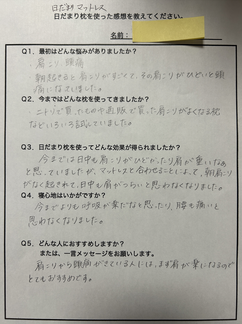 日だまりマットレス
日だまり枕を使った感想を教えてください。
名前：
Q1．最初はどんな悩みがありましたか？
肩こり 頭痛
朝起きると肩こりがすごくて、その肩こりがひどいと頭
痛になっていました。
Q2．今まではどんな枕を使ってきましたか？
ニトリで買ったものや通販で買った肩こりがよくなる枕
などいろいろ試していました。
Q3．日だまり枕を使ってどんな効果が得られましたか？
今までは日中も肩こりがひどかったり肩が重いなあ
と思っていましたが、マットレスと合わせることによって、朝肩こり
がなく起きれて、日中も肩がつらいと思わなくなりました。
Q4．寝心地はいかがですか？
今までよりも呼吸が楽だなと思ったり、腰も痛いと
思わなくなりました。
Q5．どんな人におすすめしますか？
または、一言メッセージをお願いします。
肩こりから頭痛がきている人には、まず肩が楽になるので
とてもおすすめです。